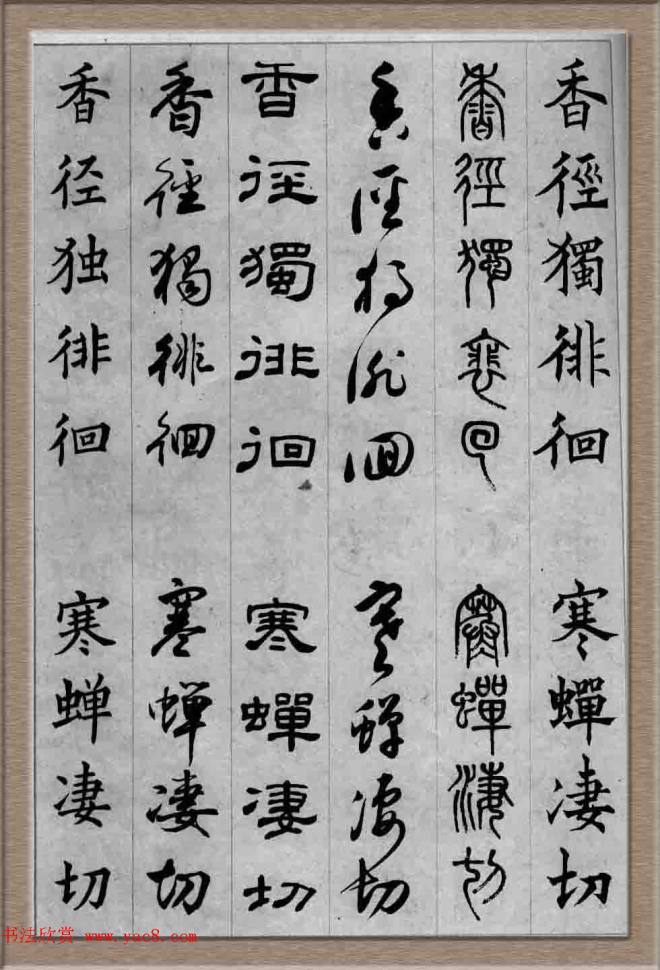 香徑獨徘徊 寒蟬淒切
香徑獨裴回 寒蟬淒切
香徑獨徘徊 寒蟬淒切
香徑獨徘徊 寒蟬淒切
香徑獨徘徊 寒蝉淒切
香径独徘徊 寒蝉凄切
书法欣赏 www.yac8.com